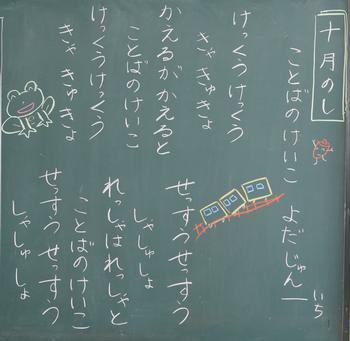 十月のし
ことばのけいこ よだじゅん一
いち
けっくうけっくう
きゃ きゅ きょ
かえるが かえると
ことばのけいこ
けっくうけっくう
きゃ きゅ きょ
せっすうせっすう
しゃ しゅ しょ
れっしゃはれっしゃと
ことばのけいこ
せっすう せっすう
しゃ しゅ しょ